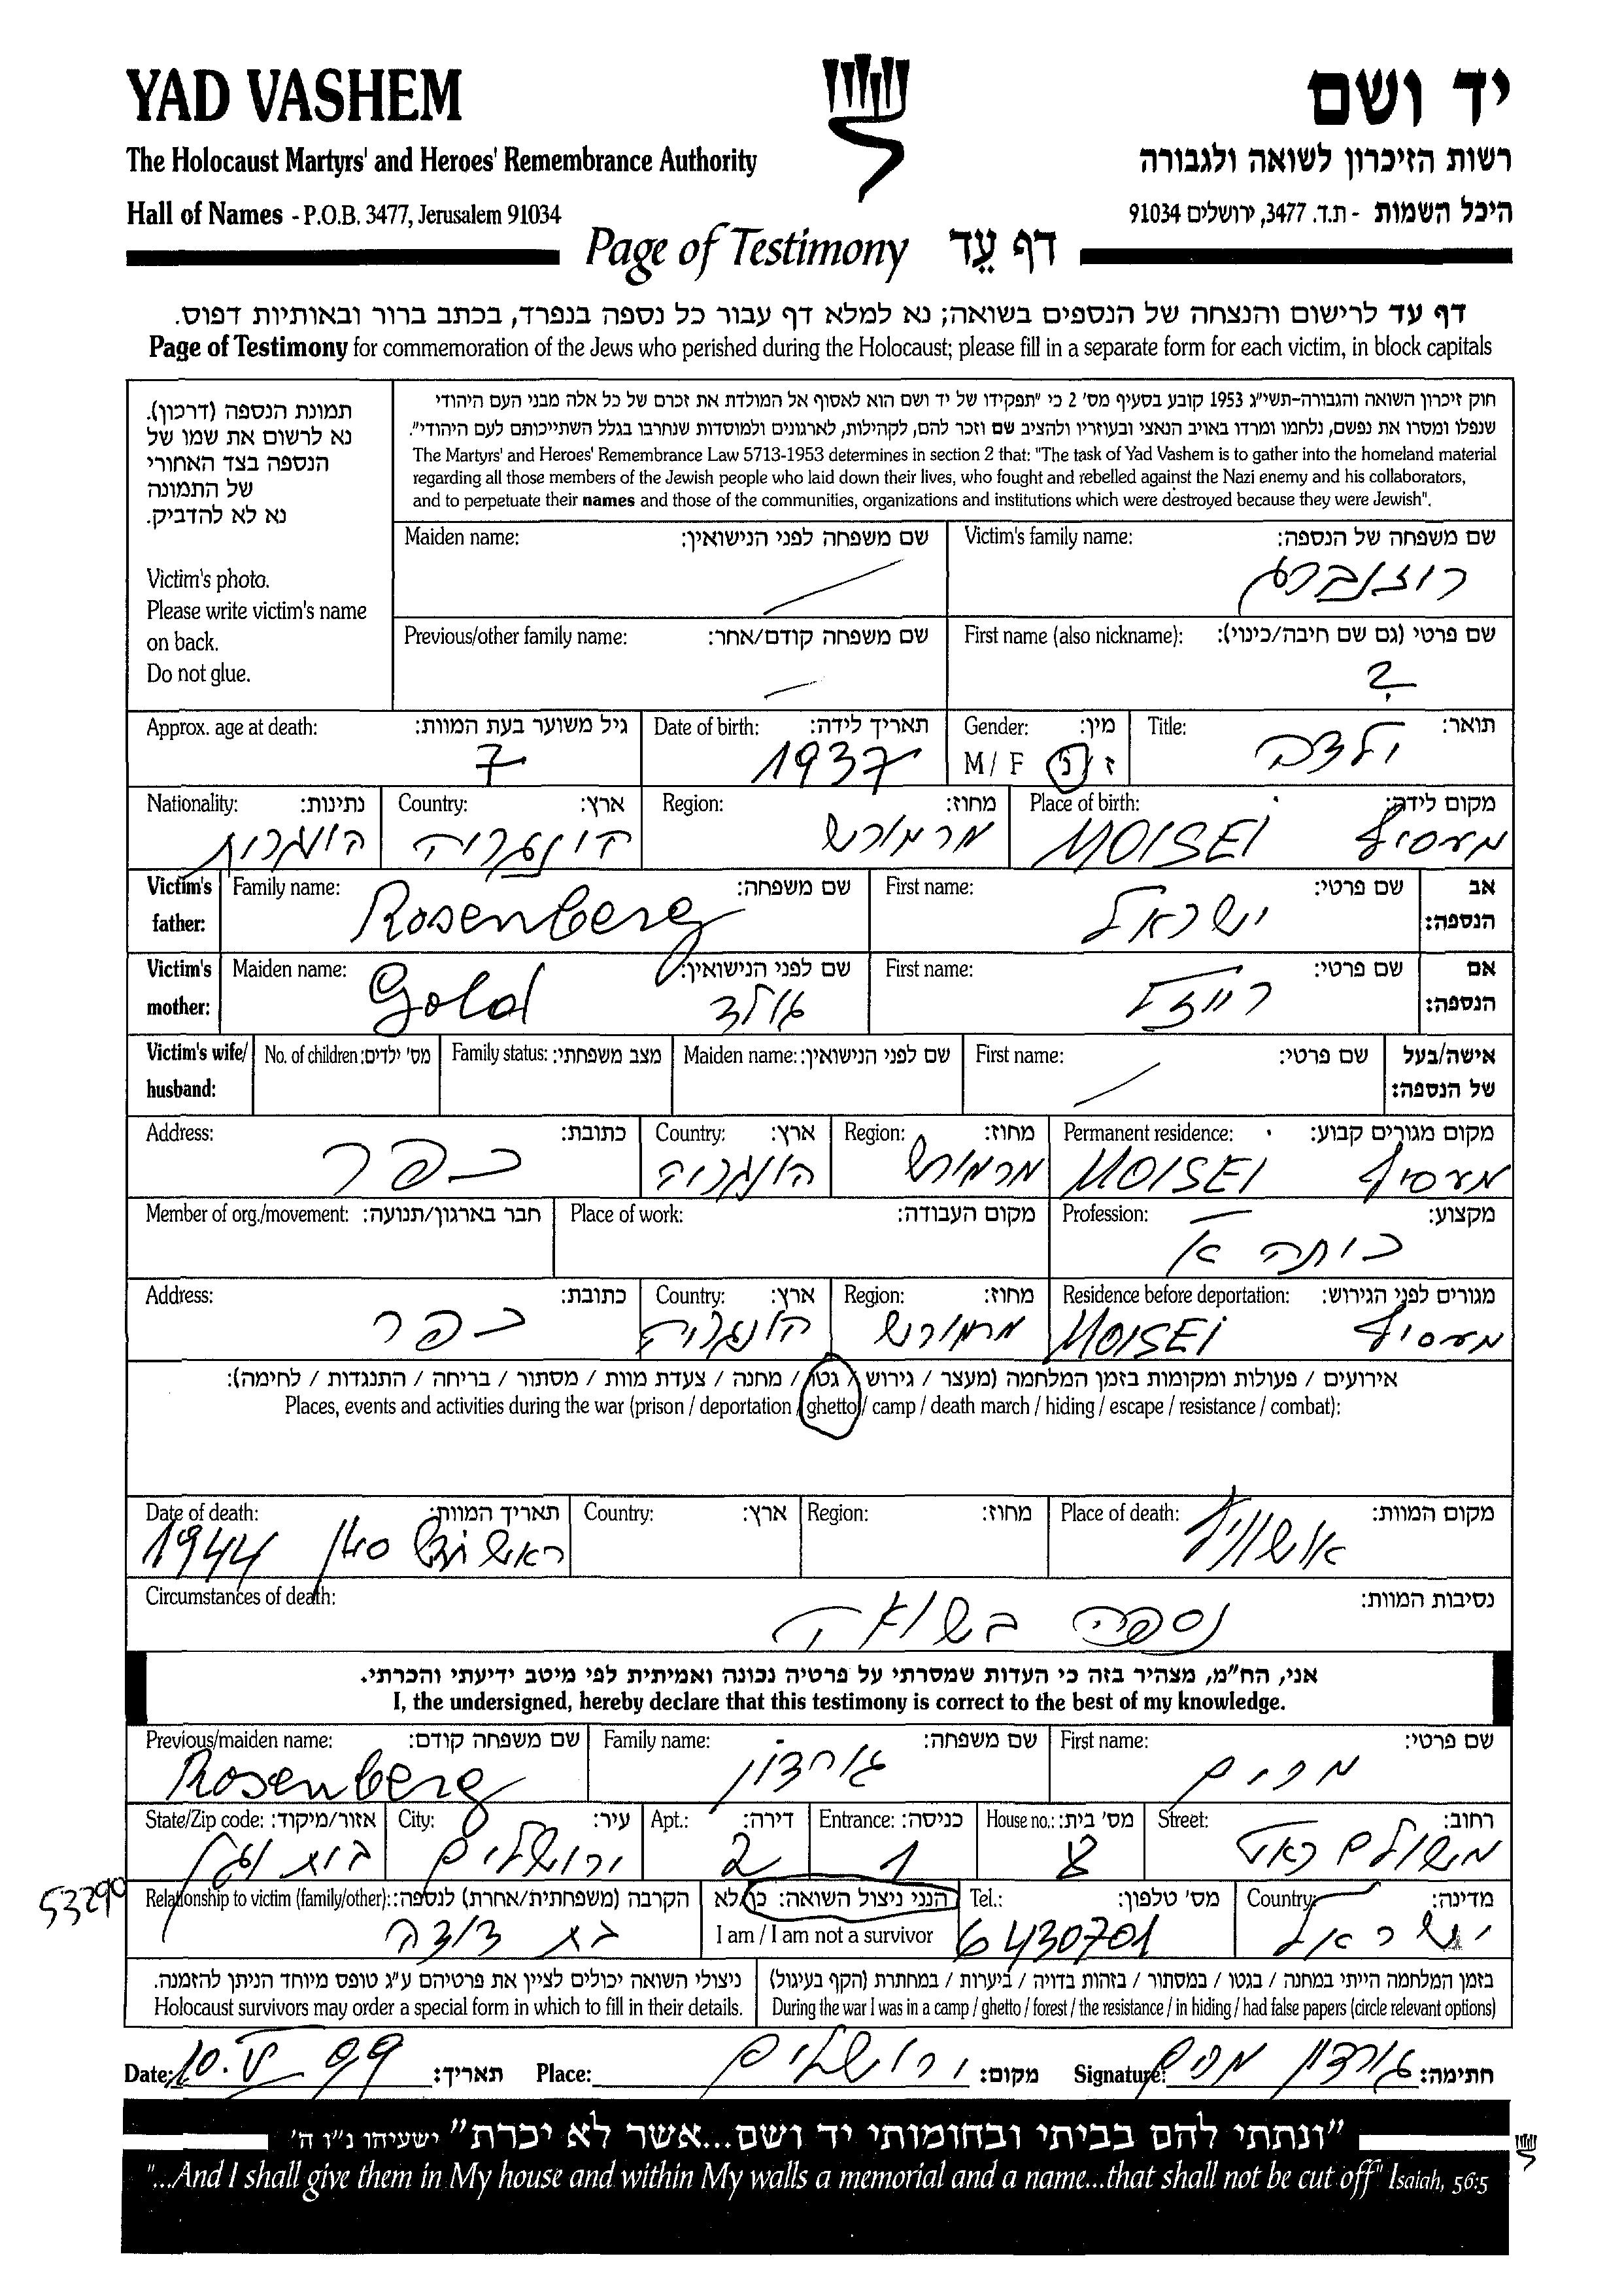 YAD VASHEM
יד ושם
The Holocaust Martyrs' and Heroes' Remembrance Authority
רשות הזיכרון לשואה ולגבורה
Hall of Names - P.O.B. 3477, Jerusalem 91034
היכל השמות - ת.ד. 3477, ירושלים 91034
Page of Testimony דף עֵד
דף עד לרישום והנצחה של הנספים בשואה; נא למלא דף עבור כל נספה בנפרד, בכתב ברור ובאותיות דפוס.
Page of Testimony for commemoration of the Jews who perished during the Holocaust; please fill in a separate form for each victim, in block capitals
תמונת הנספה (דרכון).
נא לרשום את שמו של
הנספה בצד האחורי
של התמונה
נא לא להדביק.
Victim's photo.
Please write victim's name
on back.
Do not glue.
חוק זיכרון השואה והגבורה-תשי"ג 1953 קובע בסעיף מס' 2 כי "תפקידו של יד ושם הוא לאסוף אל המולדת את זכרם של כל אלה מבני העם היהודי
שנפלו ומסרו את נפשם, נלחמו ומרדו באויב הנאצי ובעוזריו ולהציב שם וזכר להם, לקהילות, לארגונים ולמוסדות שנחרבו בגלל השתייכותם לעם היהודי".
The Martyrs' and Heroes' Remembrance Law 5713-1953 determines in section 2 that: "The task of Yad Vashem is to gather into the homeland material
regarding all those members of the Jewish people who laid down their lives, who fought and rebelled against the Nazi enemy and his collaborators,
and to perpetuate their names and those of the communities, organizations and institutions which were destroyed because they were Jewish".
Victim's family name: שם משפחה של הנספה:
רוזנברג
Maiden name: שם משפחה לפני הנישואין:
First name (also nickname): שם פרטי (גם שם חיבה/כינוי):
?
Previous/other family name: שם משפחה קודם/אחר:
Title: תואר:
ילדה
Gender: מין:
M / F ז / נ
Date of birth: תאריך לידה:
1937
Approx. age at death: גיל משוער בעת המוות:
7
Place of birth: מקום לידה:
MOISEI מעסיף
Region: מחוז:
מרמורש
Country: ארץ:
הונגריה
Nationality: נתינות:
הונגרית
Victim's father:
אב הנספה:
First name: שם פרטי:
ישראל
Family name: שם משפחה:
Rosenberg
Victim's mother:
אם הנספה:
First name: שם פרטי:
רייזל
Maiden name: שם לפני הנישואין:
Gold גולד
Victim's wife/ husband:
אישה/בעל של הנספה:
First name: שם פרטי:
Maiden name: שם לפני הנישואין:
Family status: מצב משפחתי:
No. of children: מס' ילדים:
Permanent residence: מקום מגורים קבוע:
MOISEI מעסיף
Region: מחוז:
מרמורש
Country: ארץ:
הונגריה
Address: כתובת:
כפר
Profession: מקצוע:
כותה א'
Place of work: מקום העבודה:
Member of org./movement: חבר בארגון/תנועה:
Residence before deportation: מגורים לפני הגירוש:
MOISEI מעסיף
Region: מחוז:
מרמורש
Country: ארץ:
הונגריה
Address: כתובת:
כפר
אירועים / פעולות ומקומות בזמן המלחמה (מעצר / גירוש / גטו / מחנה / צעדת מוות / מסתור / בריחה / התנגדות / לחימה):
Places, events and activities during the war (prison / deportation / ghetto / camp / death march / hiding / escape / resistance / combat):
Place of death: מקום המוות:
אושוויץ
Region: מחוז:
Country: ארץ:
Date of death: תאריך המוות:
ראש חודש סיון 1944
Circumstances of death: נסיבות המוות:
נספה בשואה
אני, הח"מ, מצהיר בזה כי העדות שמסרתי על פרטיה נכונה ואמיתית לפי מיטב ידיעתי והכרתי.
I, the undersigned, hereby declare that this testimony is correct to the best of my knowledge.
First name: שם פרטי:
מרים
Family name: שם משפחה:
גורדון
Previous/maiden name: שם משפחה קודם:
Rosenberg
Street: רחוב:
משולם ראט
House no.: מס' בית:
Entrance: כניסה:
1
Apt.: דירה:
2
City: עיר:
ירושלים
State/Zip code: אזור/מיקוד:
בית וגן
53290
Country: מדינה:
ישראל
Tel.: מס' טלפון:
6430701
הנני ניצול השואה: כן/לא
I am / I am not a survivor
Relationship to victim (family/other): הקרבה (משפחתית/אחרת) לנספה:
בת דודה
בזמן המלחמה הייתי במחנה / בגטו / במסתור / בזהות בדויה / ביערות / במחתרת (הקף בעיגול)
During the war I was in a camp / ghetto / forest / the resistance / in hiding / had false papers (circle relevant options)
ניצולי השואה יכולים לציין את פרטיהם ע"ג טופס מיוחד הניתן להזמנה.
Holocaust survivors may order a special form in which to fill in their details.
Date: 10.V 99 תאריך: Place: ירושלים מקום: Signature: גורדון מרים חתימה:
"ונתתי להם בביתי ובחומותי יד ושם...אשר לא יכרת" ישעיהו נ"ו ה'
"...And I shall give them in My house and within My walls a memorial and a name...that shall not be cut off" Isaiah, 56:5